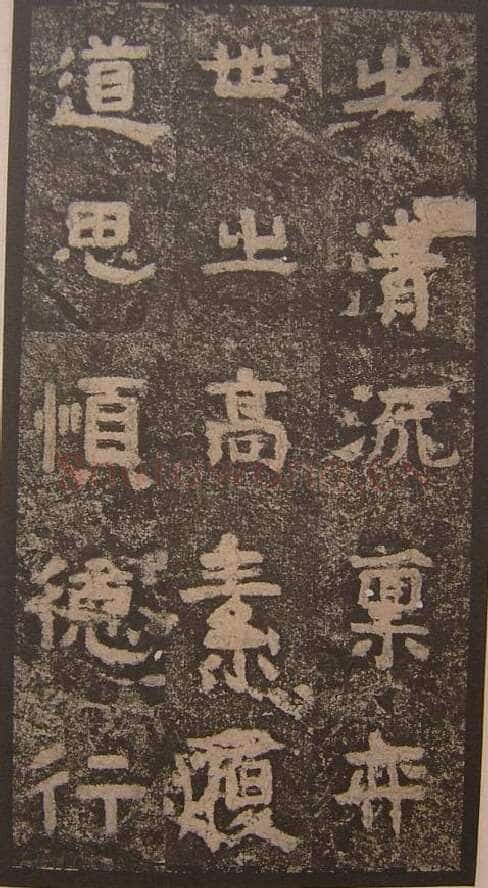 之清流稟弈
世之高素履
道思順德行